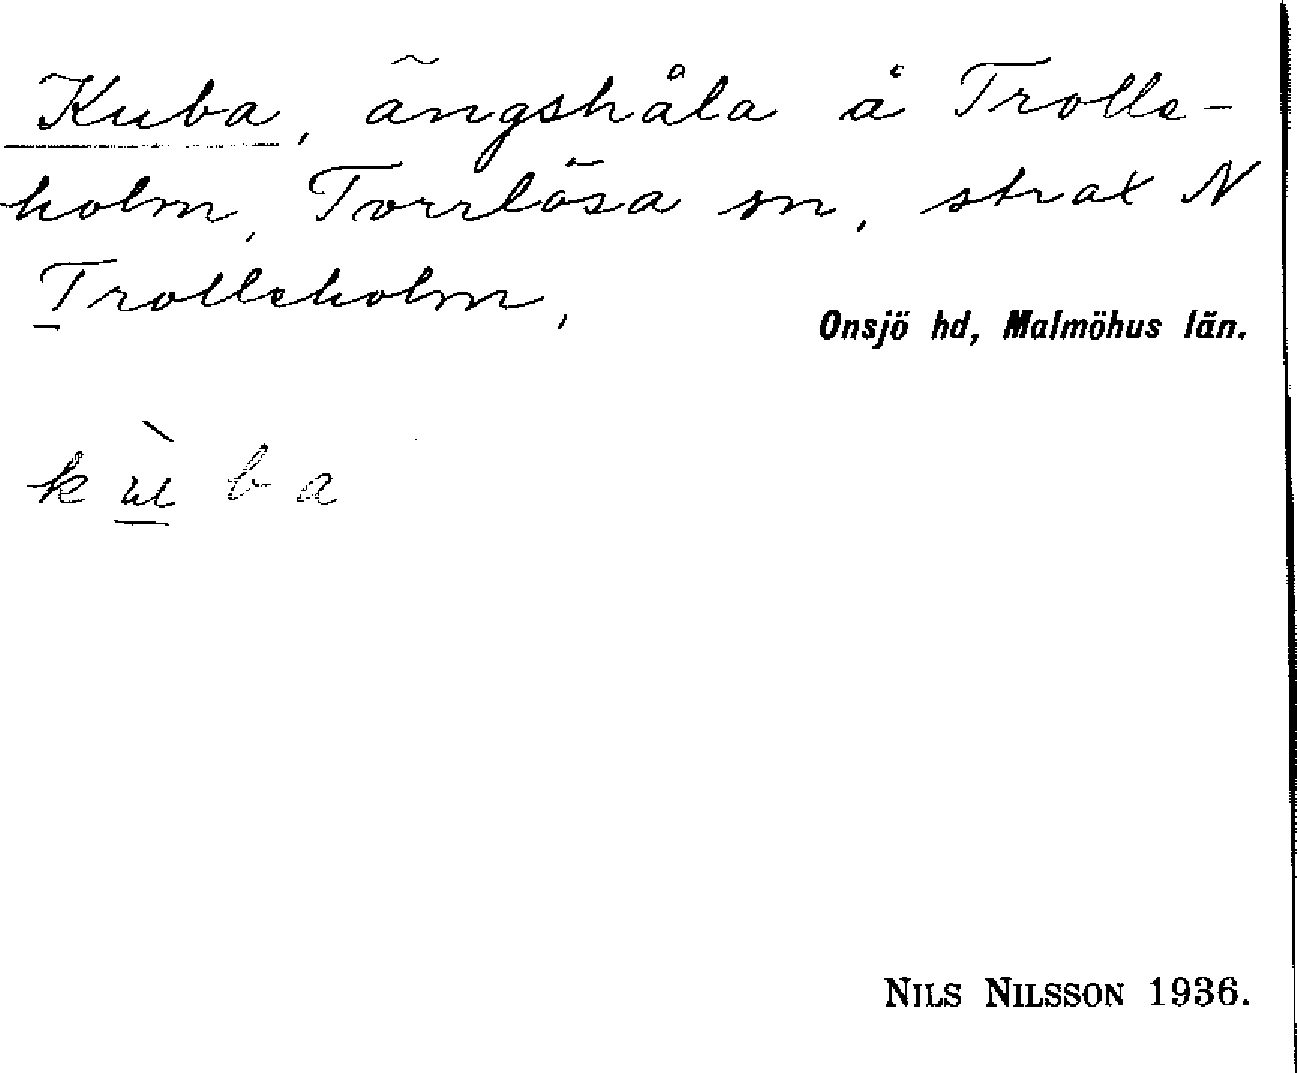 Kuba, ängshåla å Trolle-
holm, Torrlösa sn, strax N
Trolleholm,
Onsjö hd, Malmöhus län.
kùba
NILS NILSSON 1936.